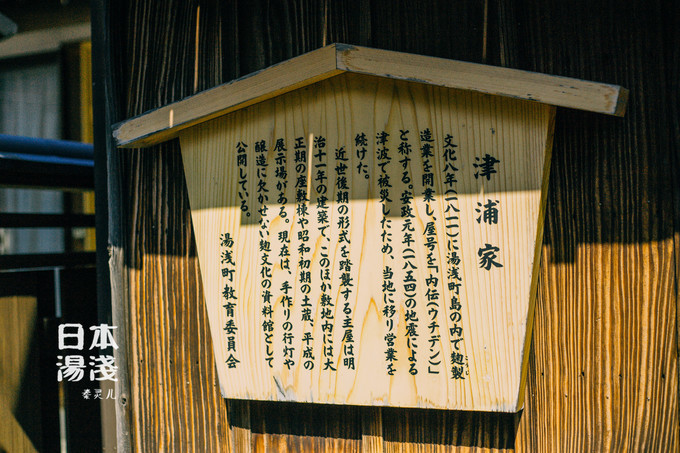 津浦家
文化八年(一八一一)に湯浅町島の内で麹製
造業を開業し、屋号を「内伝(ウチデン)」
と称する。安政元年(一八五四)の地震による
津波で被災したため、当地に移り営業を
続けた。
近世後期の形式を踏襲する主屋は明
治十一年の建築で、このほか敷地内には大
正期の座敷棟や昭和初期の土蔵、平成の
展示場がある。現在は、手作りの行灯や
醸造に欠かせない麹文化の資料館として
公開している。
湯浅町教育委員会
日本
湯淺
秦灵儿